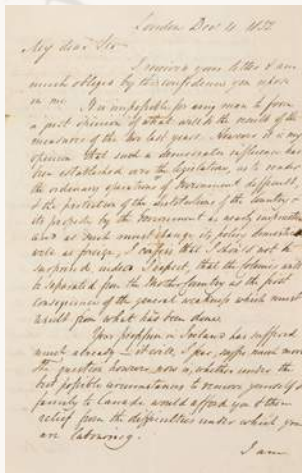 London Dec 4. 1832
My dear Sir
I received your letter & am
much obliged by the confidence you repose
in me. It is impossible for any man to form
a just opinion of what will be the results of the
measures of the two last years. However it is my
opinion that such a democratic influence has
been established over the legislature, as to render
the ordinary operations of Government difficult
& the protection of the institutions of the Country &
its property by the Government as nearly impossible
and as such must change its policy domestick
well as foreign, I confess that I should not be
surprised, indeed I expect, that the Colonies will
be separated from the Mother Country as the first
consequence of the general weakness which must
result from what has been done.
Your property in Ireland has suffered
much already it will, I fear, suffer much more
the question however now is, whether under the
best possible circumstances to remove yourself &
family to Canada would afford you & them
relief from the difficulties under which you
are labouring.
I am